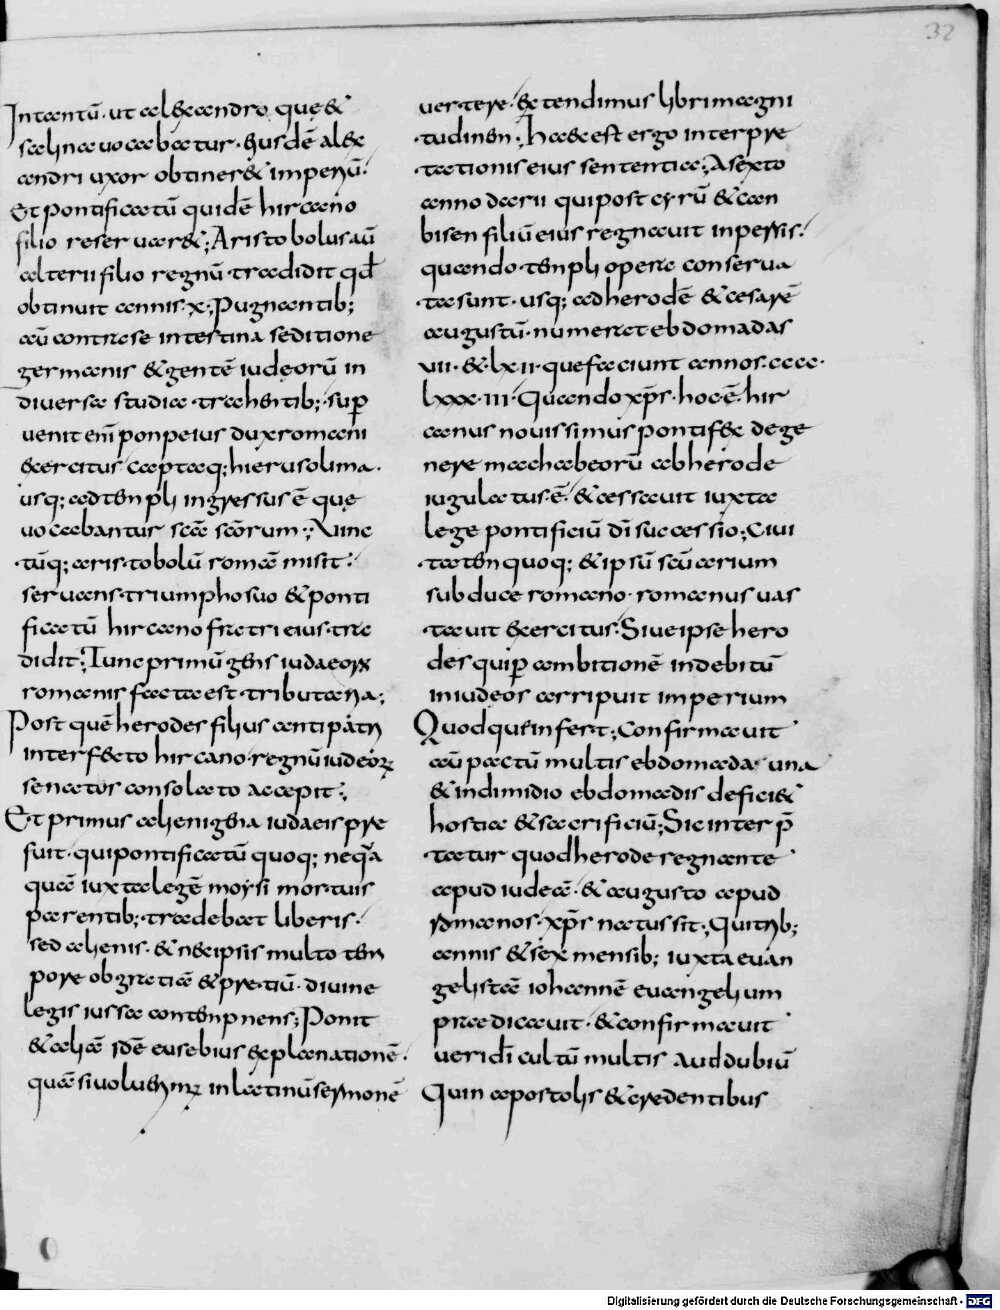 32
Intantū. ut alexandra que &
salina uocabatur. eiusdē alex
andri uxor obtiner& imperiū.
Et pontificatū quidē hircano
filio reseruar&; Aristobolus aū
alterii filio regnū tradidit qd
obtinuit annis .x; Pugnantib;
aū contra se intestina seditione
germanis & gentē iudeorū in
diuersa studia trahentib; sup
uenit eni ponpeius dux romani
exercitus Captaq; hierusolima.
usq; ad tenpli ingressus ē quę
uocabantur scā scōrum; Uinc
tūq; aristobolū romā misit.
seruans triumpho suo & ponti
ficatū hircano fratri eius tra
didit; Tunc primū gens iudaeorum
romanis facta est tributaria;
Post quē herodes filius antipatri
interfecto hircano regnū iudeorum
senatus consolato accepit;
Et primus alienigena iudaeis pre
fuit. qui pontificatū quoq; nequa
quā iuxta legē moysi mortuis
parentib; tradebat liberis.
sed alienis. & nec ipsis multo ten
pore ob gratiā & pretiū. diuine
legis iussa contenpnens; Ponit
& aliā idē eusebius explanationē.
quā si uoluerimus in latinū sermonē
uertere. extendimus libri magni
tudinen; Haec est ergo interpre
tationis eius sententia; A sexto
anno darii qui post cyrū & can
bisen filiū eius regnauit in persis.
quando tenpli opera conserua
ta sunt. usq; ad herodē & cesarē
augustū. numerat ebdomadas
VII. & lxii. que faciunt annos. cccc.
lxxxiii. Quando xps. hoc ē. hir
canus nouissimus pontifex de ge
nere machabeorū ab herode
iugulatus ē. & cessauit iuxta
lege pontificiū di successio; Ciui
taten quoq; & ipsū scū arium
sub duce romano romanus uas
tauit exercitus. Siue ipse hero
des qui p ambitionē indebitū
in iudeos arripuit imperium
Quod que infert; Confirmauit
aū pactū multis ebdomada una
& in dimidio ebdomadis defici&
hostia & sacrificiū; Sic inter p̄
tatur quod herode regnante
apud iudeā. & augusto apud
romanos. xps natus sit; Qui trib;
annis & sex mensib; iuxta euan
gelistā iohannē euangelium
praedicauit. & confirmauit
ueri di cultū multis haud dubiū
Quin apostolis & credentibus
Digitalisierung gefördert durch die Deutsche Forschungsgemeinschaft - DFG